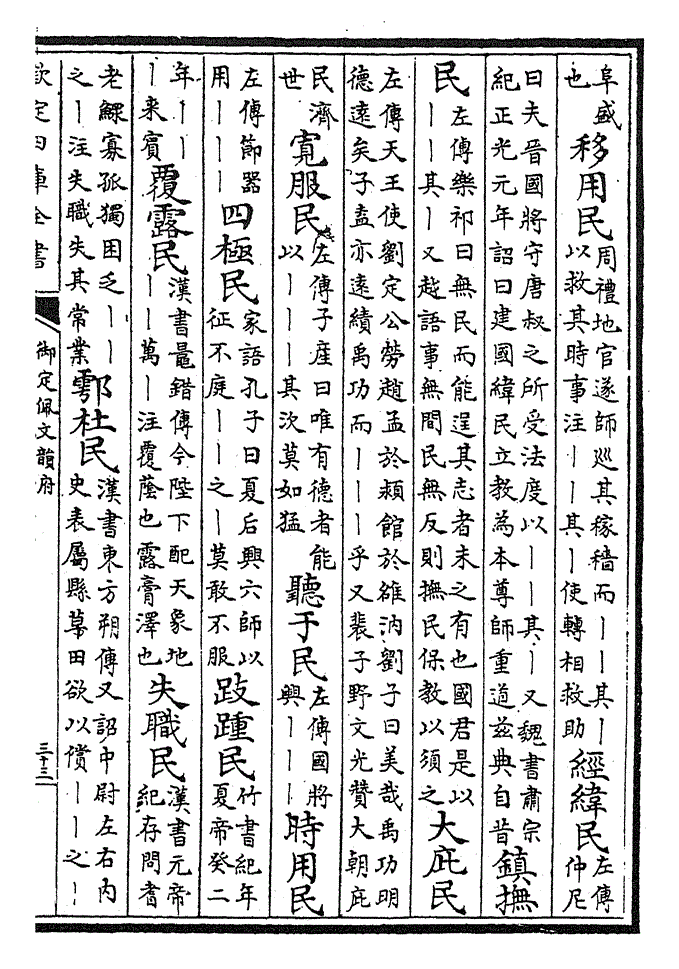 阜盛也 移用民 周禮地官遂師巡其稼穡而丨丨其丨以救其時事注丨丨其丨使轉相救助 經緯民 左傳仲尼
曰夫晉國將守唐叔之所受法度以丨丨其丨又魏書肅宗紀正光元年詔曰建國緯民立教為本尊師重道茲典自昔 鎮撫
民 左傳樂祁曰無民而能逞其志者未之有也國君是以丨丨其丨又越語事無間民無反則撫民保教以須之 大庇民
左傳天王使劉定公勞趙孟於潁館於雒汭劉子曰美哉禹功明德遠矣子盍亦遠績禹功而丨丨丨乎又裴子野文光贊大朝庇
民濟世 寛服民 左傳子產曰唯有德者能以丨丨丨其次莫如猛 聽于民 左傳國將興丨丨丨 時用民
左傳節器用丨丨丨 四極民 家語孔子曰夏后興六師以征不庭丨丨之丨莫敢不服 跂踵民 竹書紀年夏帝癸二
年丨丨丨来賓 覆露民 漢書鼂錯傳今陛下配天象地丨丨萬丨注覆蔭也露膏澤也 失職民 漢書元帝紀存問耆
老鰥寡孤獨困乏丨丨之丨注失職失其常業 鄠杜民 漢書東方朔傳又詔中尉左右内史表屬縣草田欲以償丨丨之丨
欽定四庫全書 御定佩文韻府 三十三